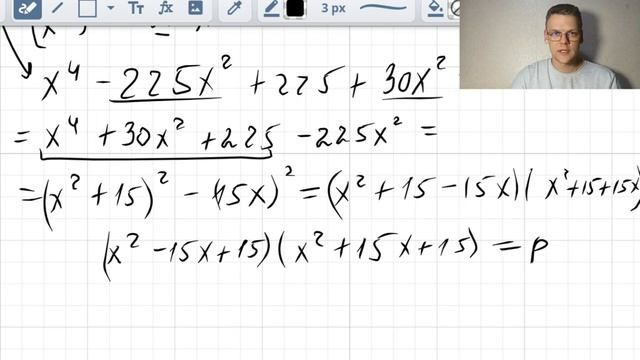 Tт fx
3 px
x⁴ - 225x² + 225 + 30x²
= x⁴ + 30x² + 225 - 225x² =
= (x² + 15)² - (15x)² = (x² + 15 - 15x)( x² + 15 + 15x)
(x² - 15x + 15)(x² + 15x + 15) = p